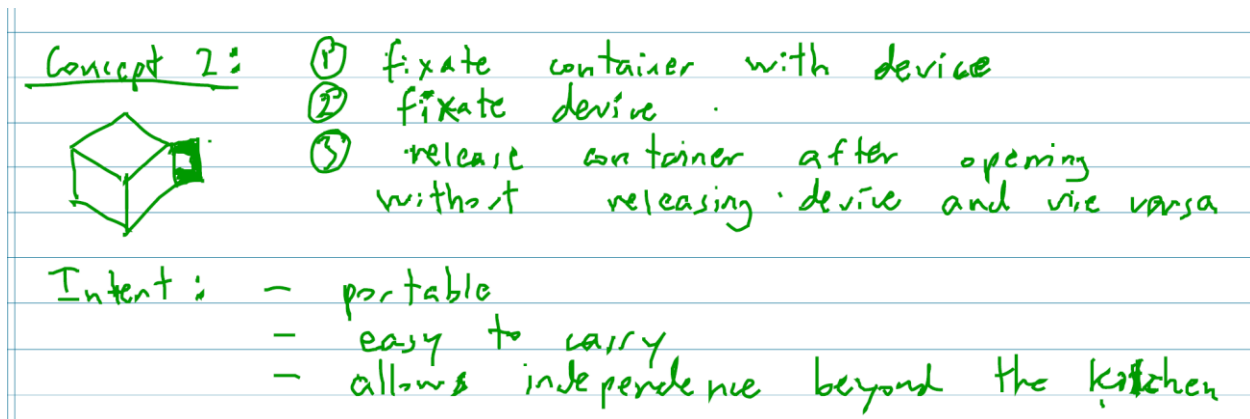 Concept 2: ① fixate container with device
② fixate device
③ release container after opening
without releasing device and vice versa
Intent: - portable
- easy to carry
- allows independence beyond the kitchen